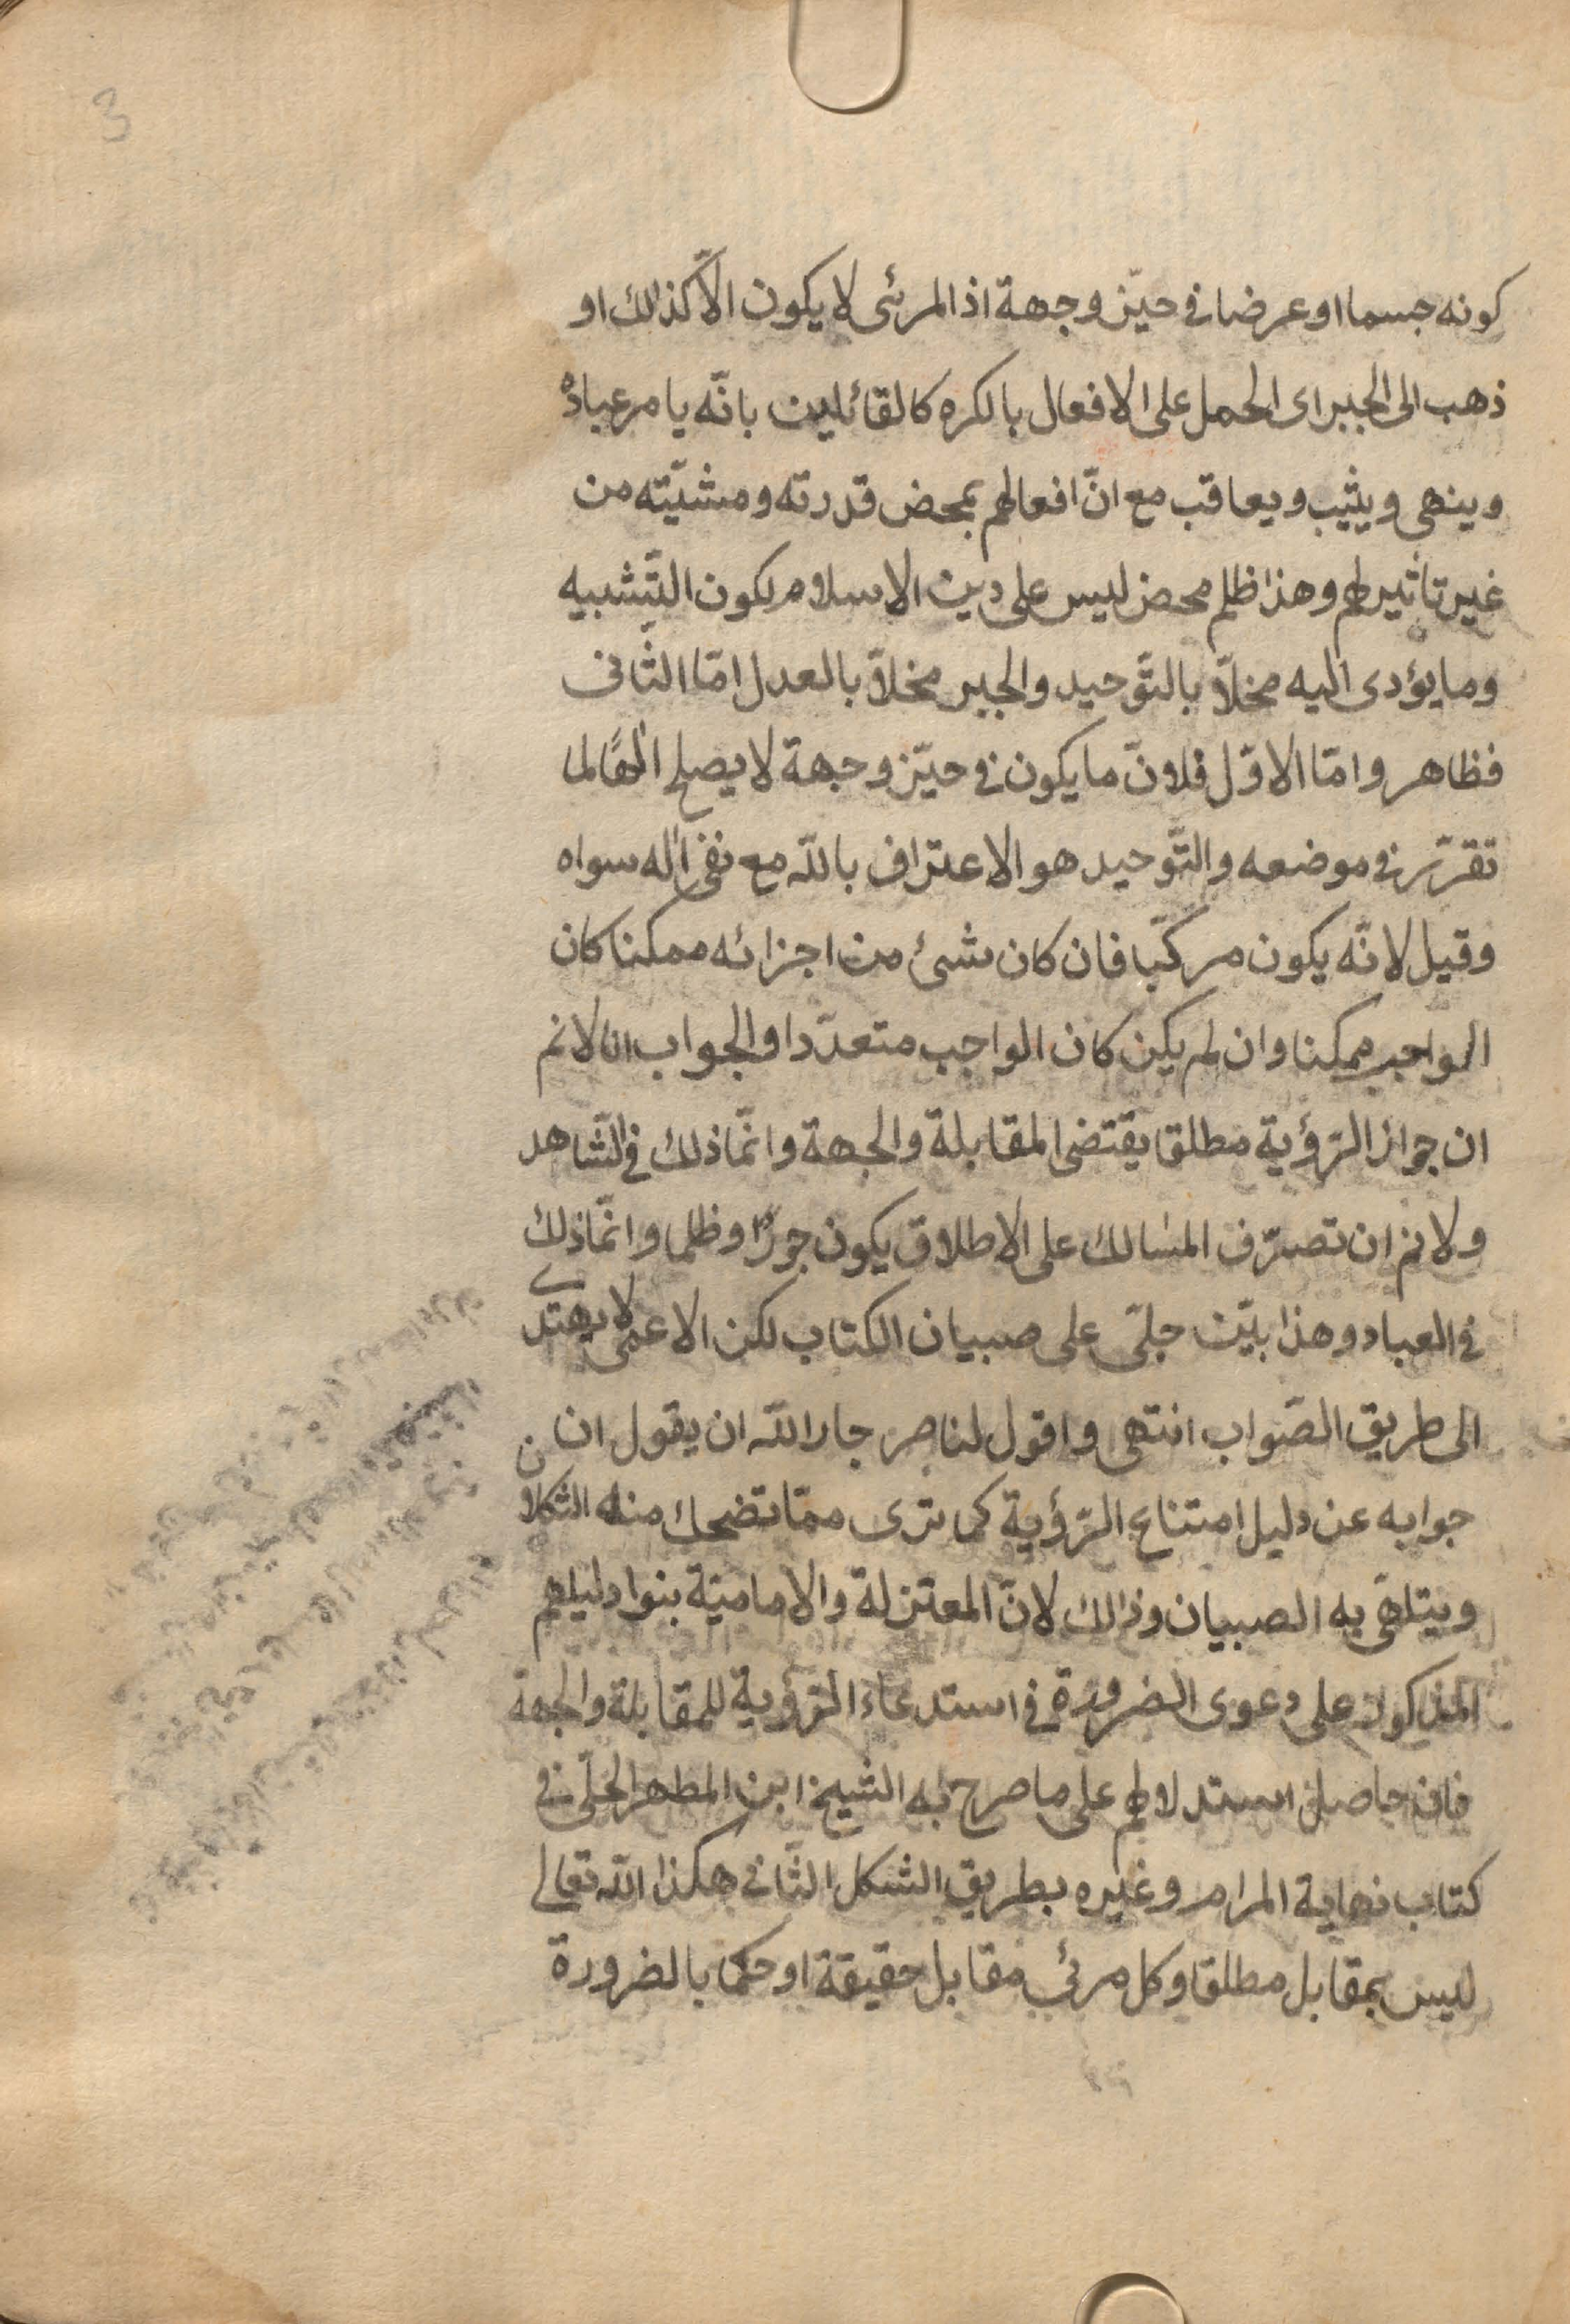 3
كونه جسما او عرضا فى حيّز وجهة اذ المرئى لا يكون الّا كذلك او
ذهب الى الجبر اى الحمل على الافعال بالكره كالقائلين بانّه يامر عباده
وينهى ويثيب ويعاقب مع انّ افعالهم بمحض قدرته ومشيّته من
غير تاثير لهم وهذا ظلم محض ليس على دين الاسلام لكون التّشبيه
وما يؤدى اليه مخلّا بالتّوحيد والجبر مخلّا بالعدل امّا الثّانى
فظاهر وامّا الاوّل فلانّ ما يكون فى حيّز وجهة لا يصلح الهًا لما
تقرّر فى موضعه والتّوحيد هو الاعتراف بالله مع نفى اله سواه
وقيل لانّه يكون مركّبا فان كان شئ من اجزائه ممكنا كان
الواجب ممكنا وان لم يكن كان الواجب متعدّدا والجواب انا لانم
ان جواز الرّؤية مطلقا يقتضى المقابلة والجهة وانّما ذلك فى الشّاهد
ولانم ان تصرّف المالك على الاطلاق يكون جورًا وظلما وانّما ذلك
فى العباد وهذا بيّن جلّى على صبيان الكتاب لكن الاعمى لا يهتدى
الى طريق الصّواب انتهى واقول لناصر جار الله ان يقول ان
جوابه عن دليل امتناع الرّؤية كما ترى ممّا تضحك منه الثكلان
ويتلهّى به الصبيان وذالك لانّ المعتزلة والاماميّة بنوا دليلهم
المذكور على دعوى الضرورة فى استدعاء الرّؤية للمقابلة والجهة
فان حاصل استدلالهم على ما صرح به الشيخ ابن المطهر الحلّى فى
كتاب نهاية المرام وغيره بطريق الشكل الثّانى هكذا الله تعالى
ليس بمقابل مطلقا وكل مرئى مقابل حقيقة او حكما بالضرورة